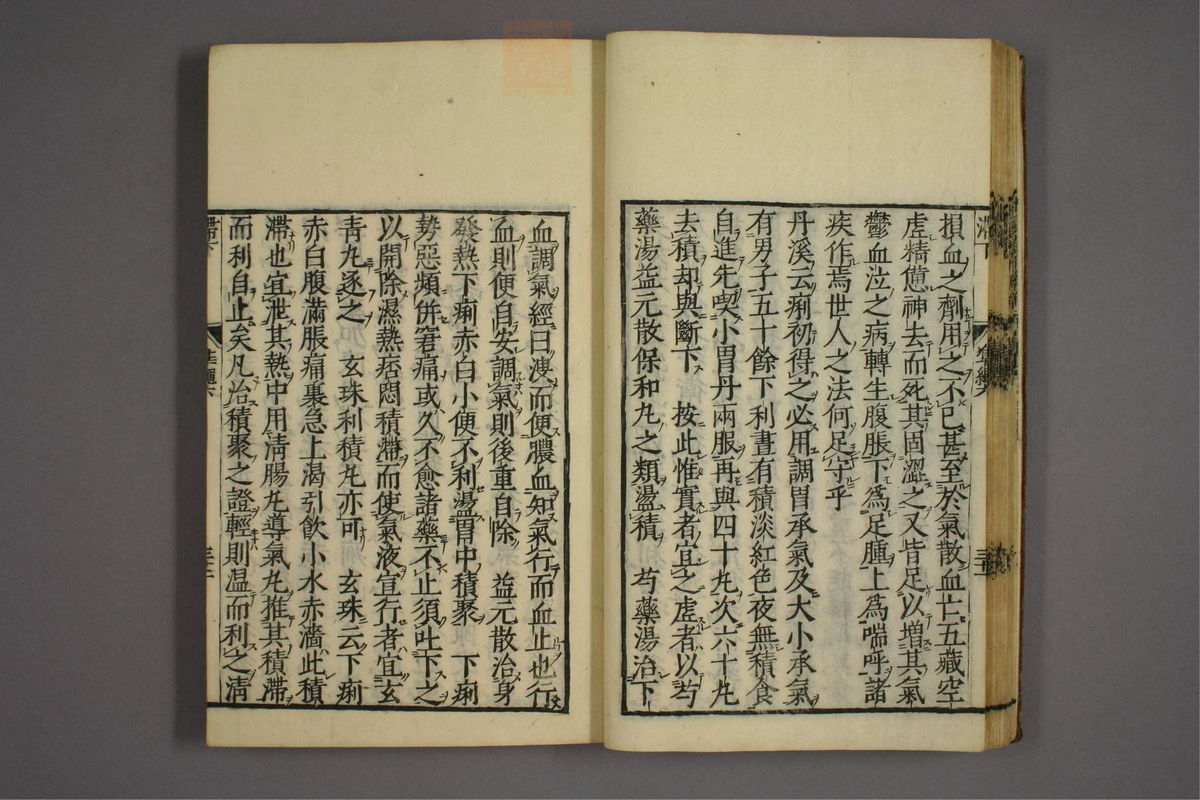 損血之劑用之不已甚至於氣散血亡五藏空
虛精憊神去而死其固澀之又皆足以增其氣
鬱血泣之病轉生腹脹下為足腫上為喘呼諸
疾作焉世人之法何足守乎
丹溪云痢初得之必用調胃承氣及大小承氣
有男子五十餘下利晝有積淡紅色夜無積食
自進先喫小胃丹兩服再與四十九次六十九
去積却與斷下 按此惟實者宜之虛者以芍
藥湯益元散保和丸之類盪積 芍藥湯治下
血調氣經曰溲而便膿血知氣行而血止也行
血則便自安調氣則後重自除 益元散治身
發熱下痢赤白小便不利盪胃中積聚 下痢
勢惡頻併窘痛或久不愈諸藥不止須吐下之
以開除濕熱痞悶積滯而使氣液宜行者宜玄
青丸逐之 玄珠利積丸亦可 玄珠云下痢
赤白腹滿脹痛裏急上渴引飲小水赤濇此積
滯也宜泄其熱中用清腸丸導氣丸推其積滯
而利自止矣凡治積聚之證輕則温而利之清